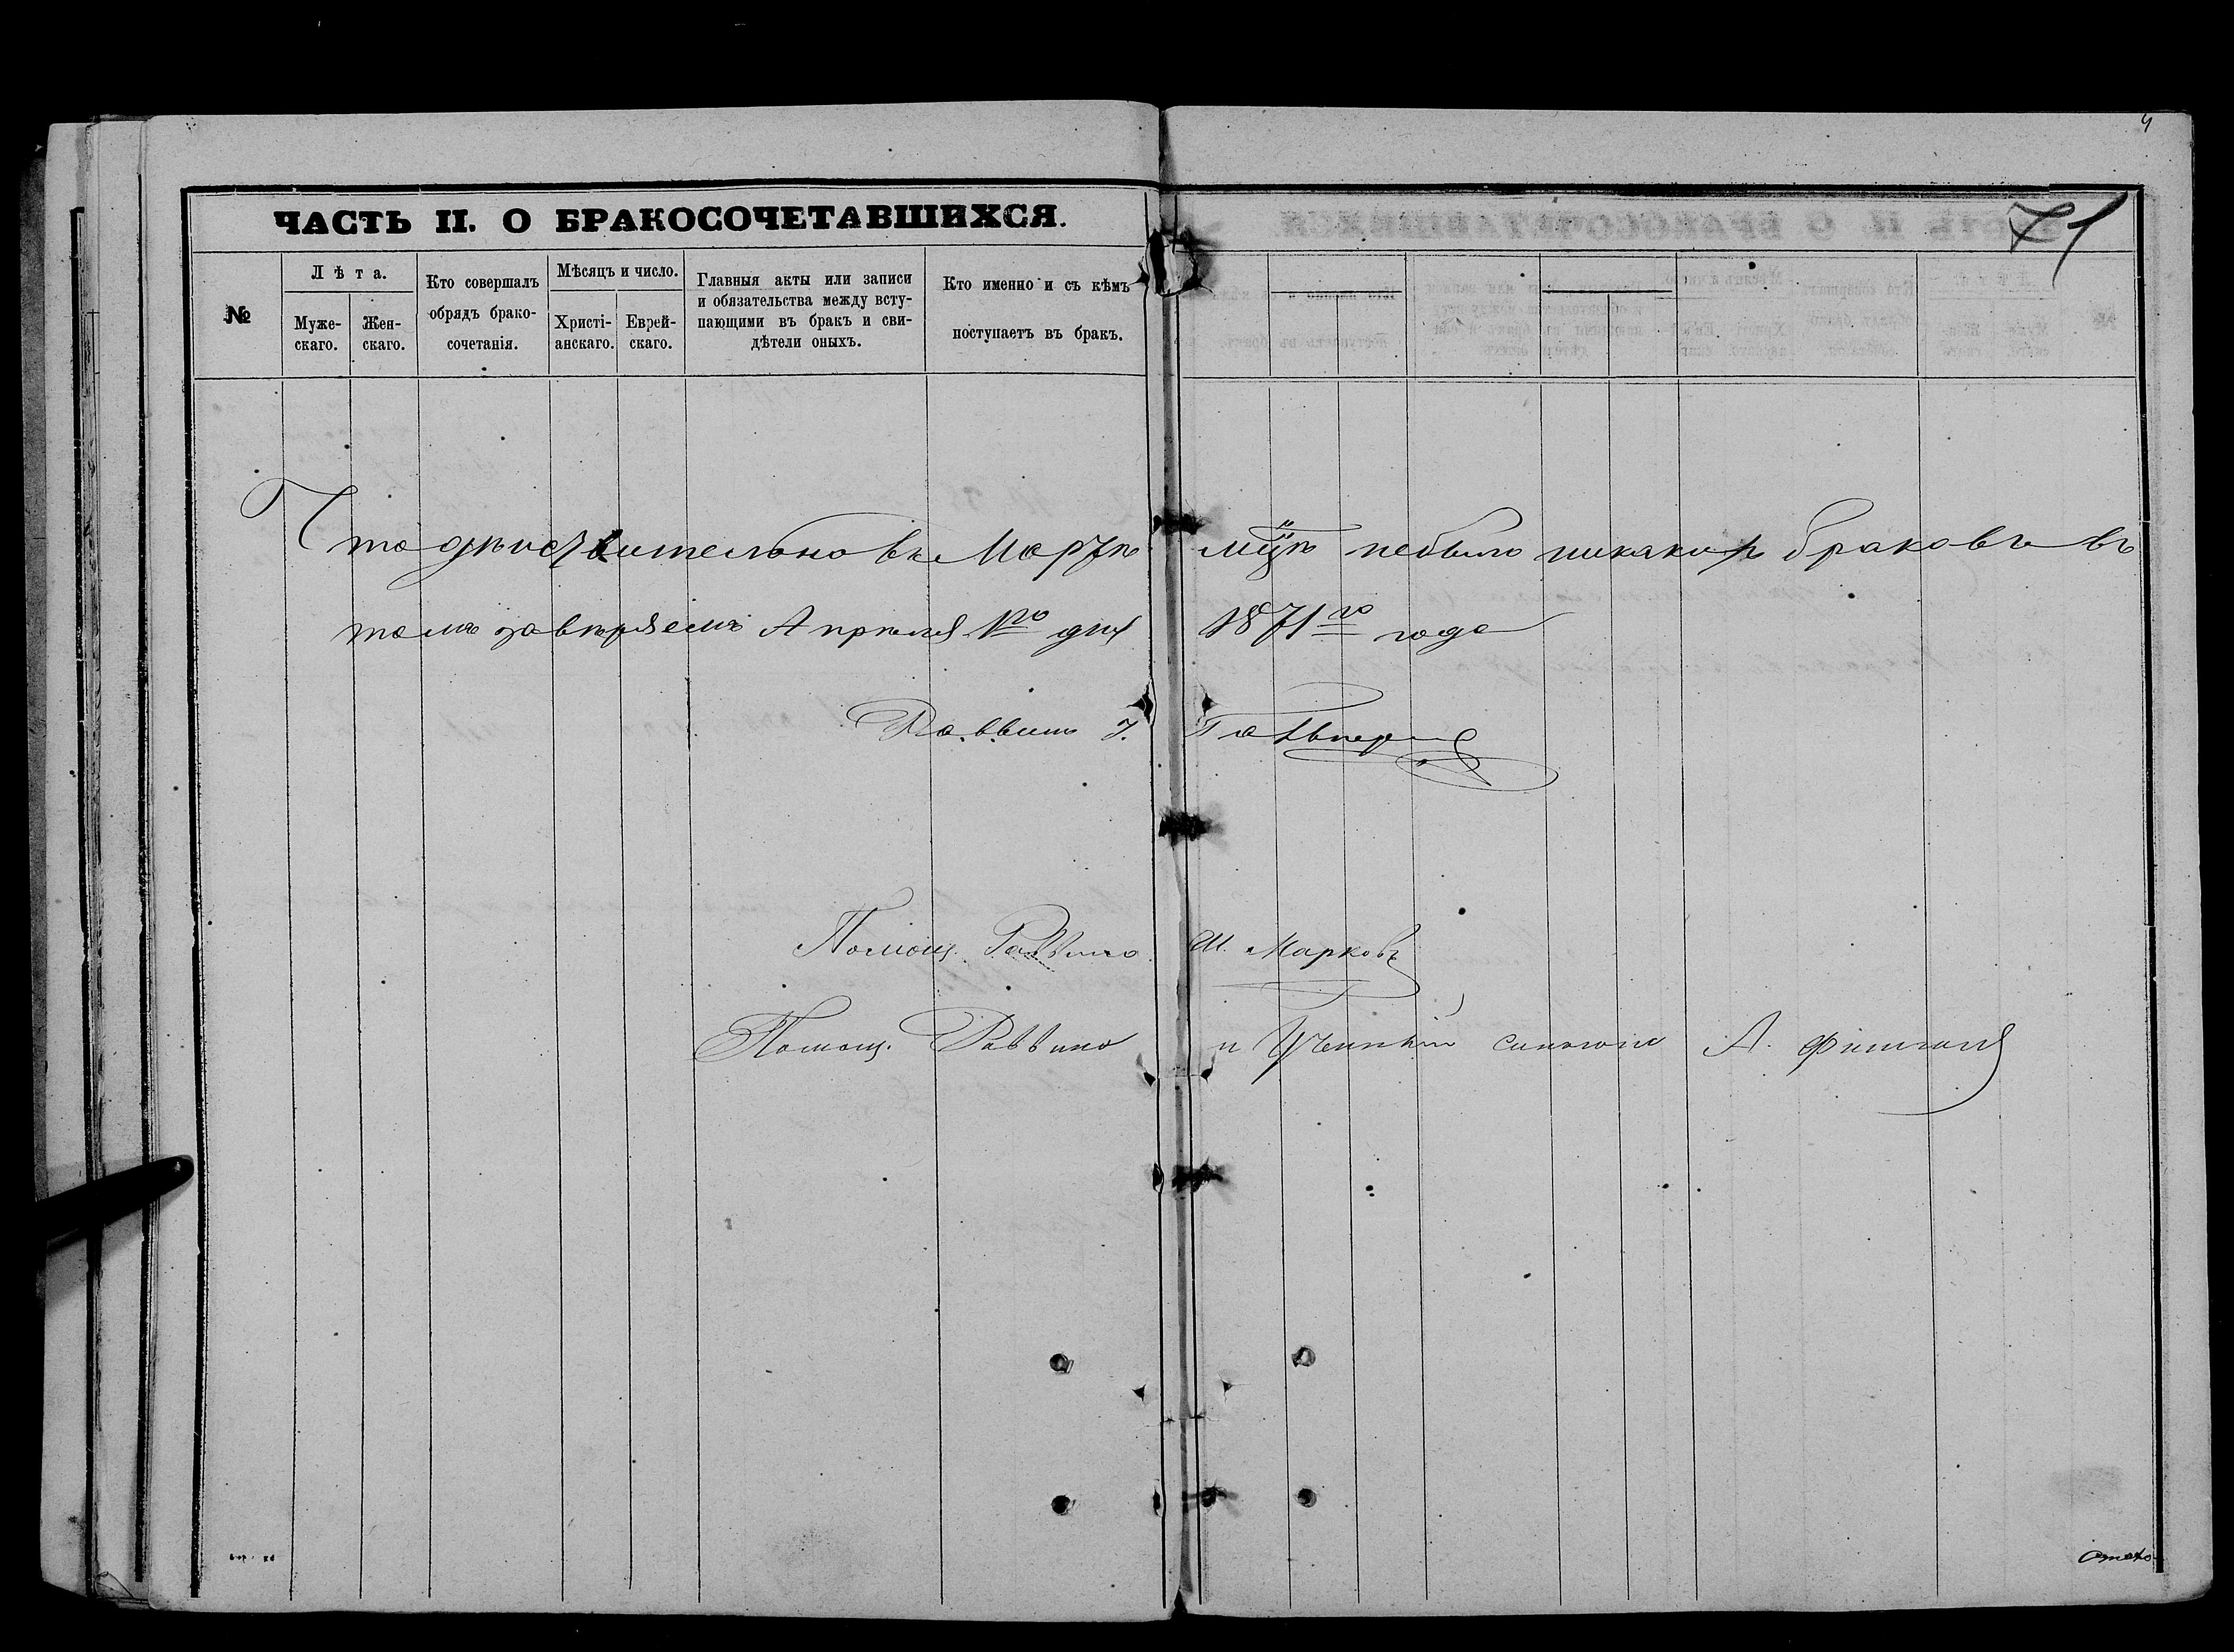 4
71
ЧАСТЬ II. О БРАКОСОЧЕТАВШИХСЯ.
№
Лѣта.
Муже-
скаго.
Жен-
скаго.
Кто совершалъ
обрядъ брако-
сочетанія.
Мѣсяцъ и число.
Христі-
анскаго.
Еврей-
скаго.
Главныя акты или записи
и обязательства между всту-
пающими въ бракъ и сви-
дѣтели оныхъ.
Кто именно и съ кѣмъ
поступаетъ въ бракъ.
Что дѣйствительно въ Мартѣ м-цѣ небыло никакихъ браковъ въ
томъ завѣряемъ Апрѣля 1го дня 1871го года
Раввинъ I. Гальпер
Помощ. Раввина Ш. Марковъ
Помощ. Раввина и Ученый синагоги А.